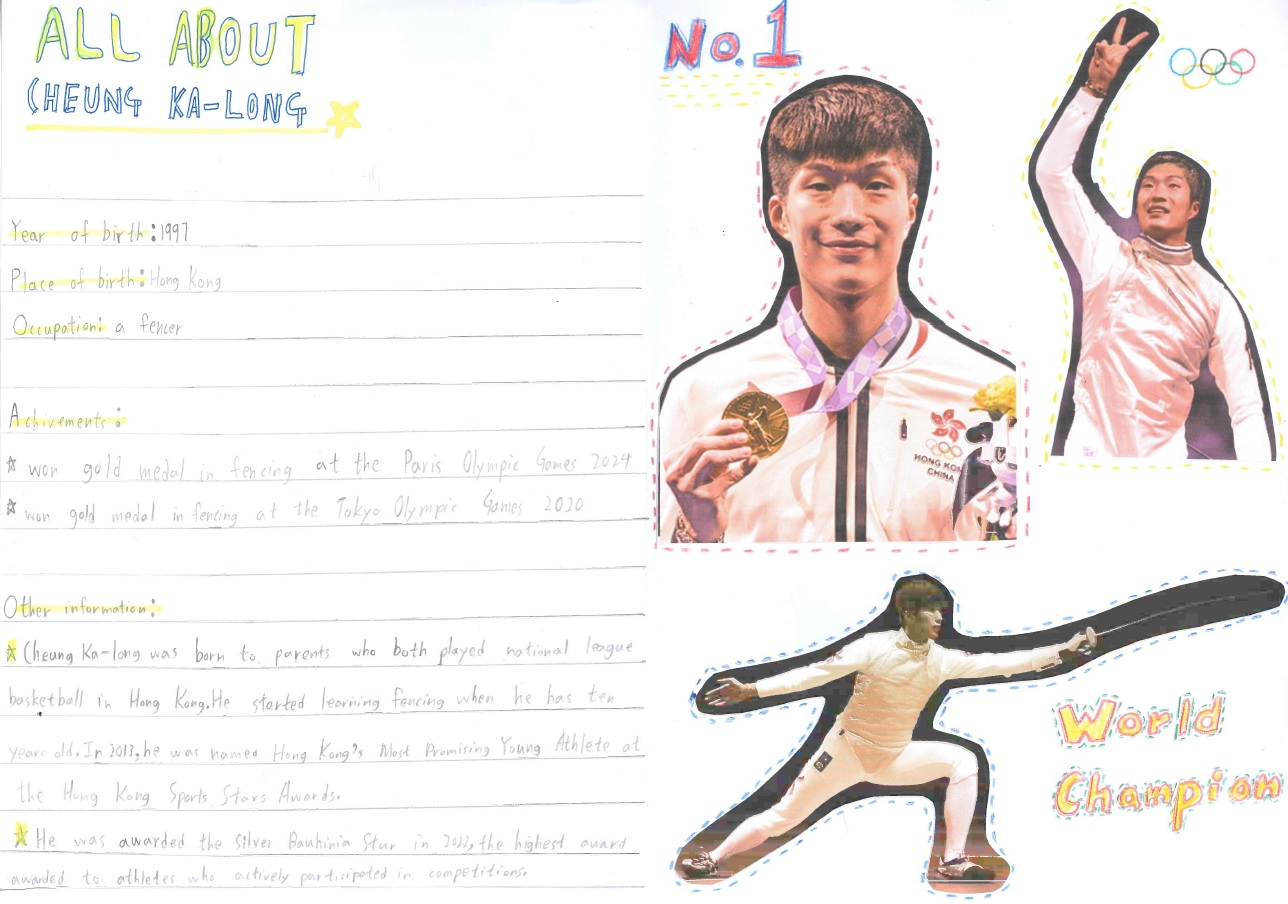 ALL ABOUT
CHEUNG KA-LONG
Year of birth:1997
Place of birth:Hong Kong
Occupation: a fencer
Achivements:
☆ won gold medal in fencing at the Paris Olympic Games 2024
☆ won gold medal in fencing at the Tokyo Olympic Games 2020
Other information:
☆ Cheung Ka-long was born to parents who both played national league
basketball in Hong Kong.He started learning fencing when he has ten
years old.In 2013,he was named Hong Kong's Most Promising Young Athlete at
the Hong Kong Sports Stars Awards.
☆ He was awarded the Silver Bauhinia Star in 2022,the highest award
awarded to athletes who actively participated in competitions.
No.1
HONG KONG
CHINA
World
Champion